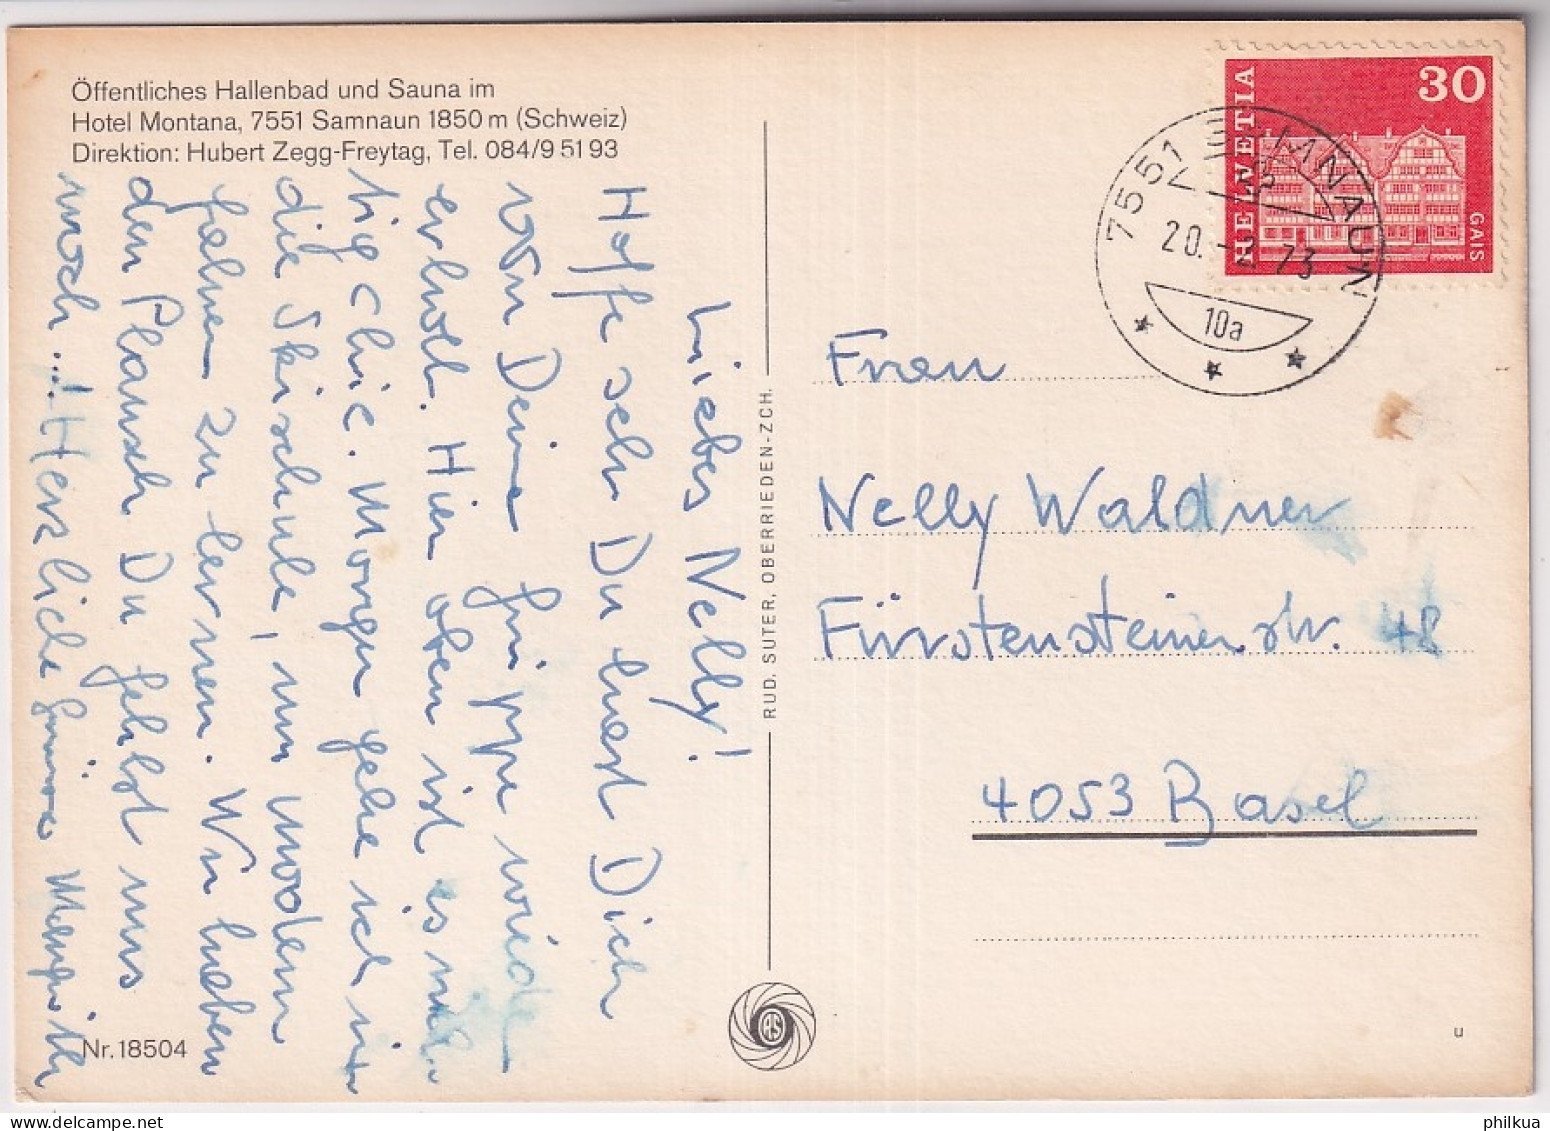 Öffentliches Hallenbad und Sauna im
Hotel Montana, 7551 Samnaun 1850 m (Schweiz)
Direktion: Hubert Zegg-Freytag, Tel. 084/9 51 93
Liebes Nelly!
Hoffe sehr Du hast Dich
von Deine Grippe wieder
erholt. Hier oben ist es
tig chic. Morgen gehe ich in
die Skischule, um modern
fahren zu lernen. Wir haben
den Plausch Du fehlst uns
noch...! Herzliche Grüsse
Nr. 18504
RUD. SUTER, OBERRIEDEN-ZCH.
AS
HELVETIA
30
GAIS
7551 SAMNAUN
20.-2.73
10a
Frau
Nelly Waldner
Fürstensteinerstr. 48
4053 Basel
u
philkua